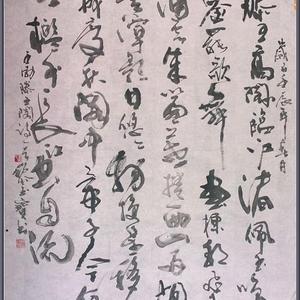 滕王高阁临江渚佩玉鸣
罢歌舞画栋朝飞
浦云朱帘暮卷西山雨闲
云潭影日悠悠物换星移
几度秋阁中帝子今何
槛外长江空自流